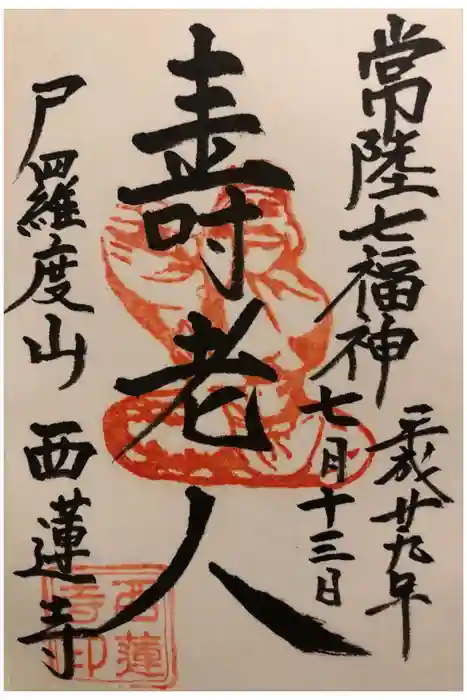 常陸七福神
平成廿九年
七月十三日
壽老人
尸羅度山 西蓮寺
西蓮寺印